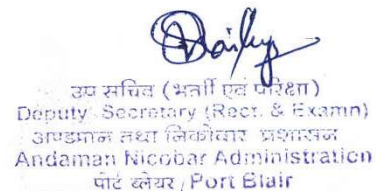 उप सचिव (भर्ती एवं परिक्षा)
Deputy Secretary (Rect. & Examn)
अण्डमान तथा निकोबार प्रशासन
Andaman Nicobar Administration
पोर्ट ब्लेयर / Port Blair